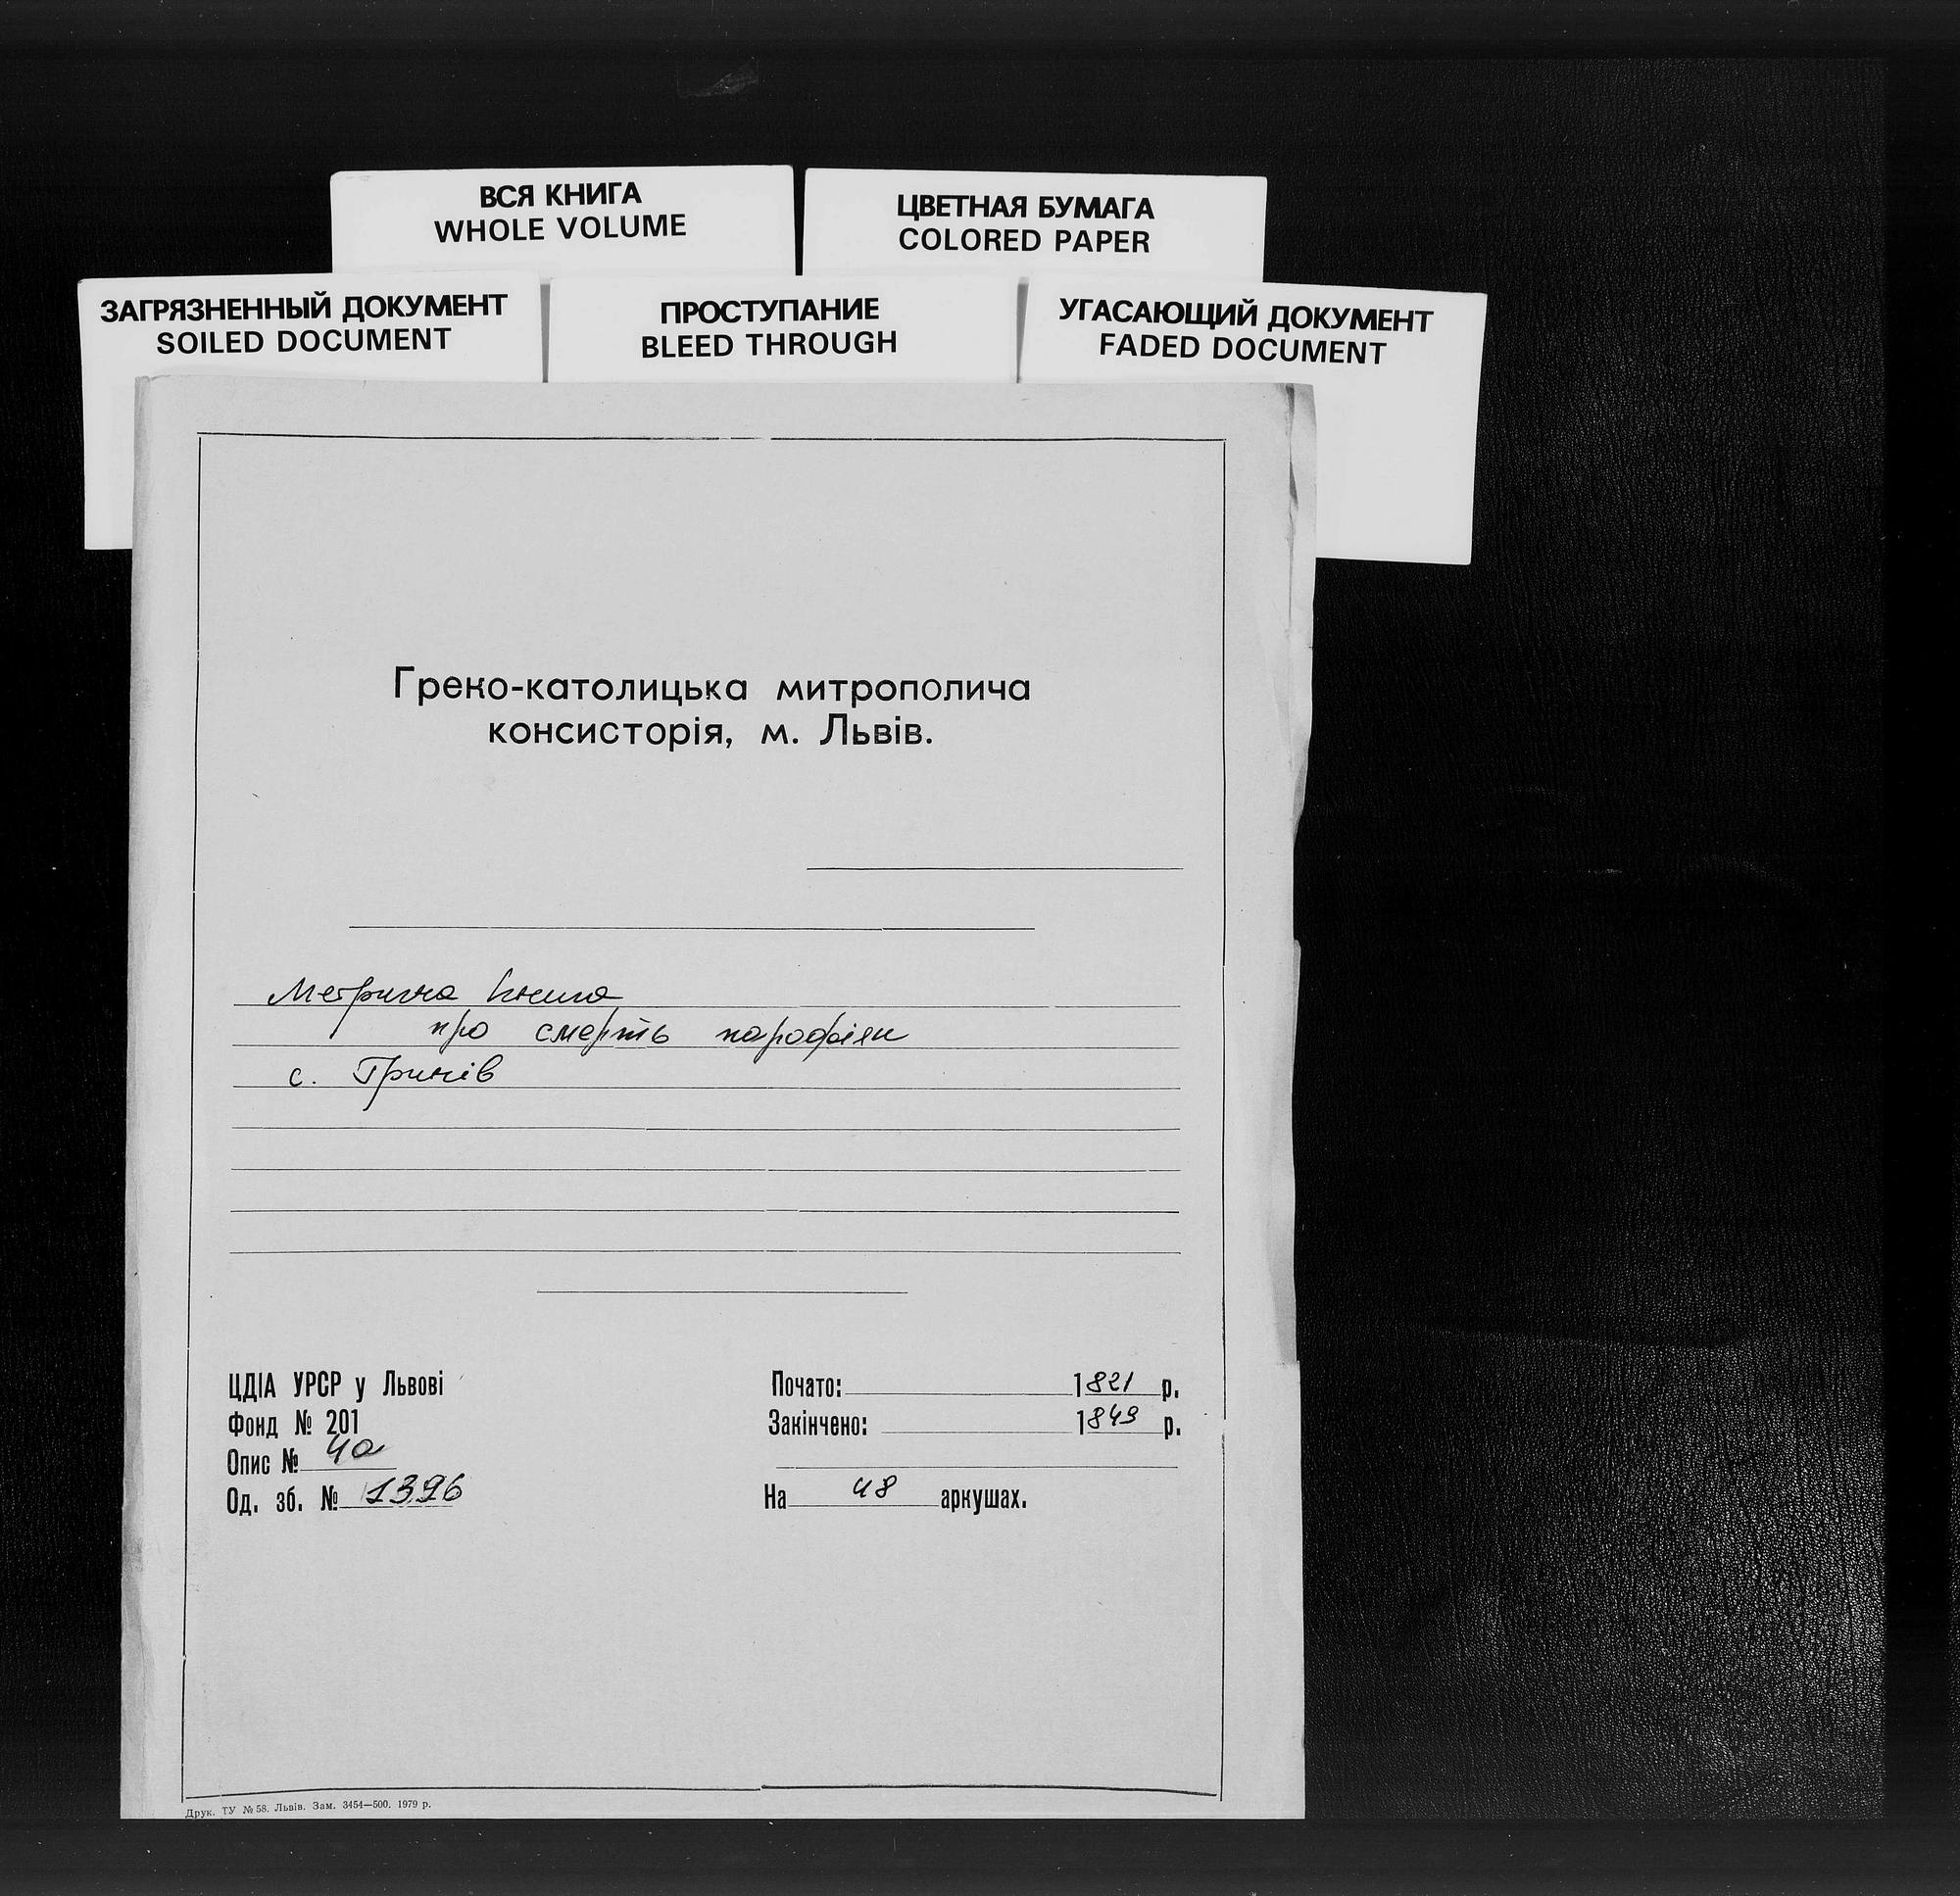 ВСЯ КНИГА
WHOLE VOLUME
ЦВЕТНАЯ БУМАГА
COLORED PAPER
ЗАГРЯЗНЕННЫЙ ДОКУМЕНТ
SOILED DOCUMENT
ПРОСТУПАНИЕ
BLEED THROUGH
УГАСАЮЩИЙ ДОКУМЕНТ
FADED DOCUMENT
Греко-католицька митрополича
консисторія, м. Львів.
Метрична книга
про смерть парафіян
с. Гринів
ЦДІА УРСР у Львові
Фонд № 201
Опис № 4а
Од. зб. № 1396
Почато: 1821 р.
Закінчено: 1849 р.
На 48 аркушах.
Друк. ТУ № 58. Львів. Зам. 3454—500. 1979 р.